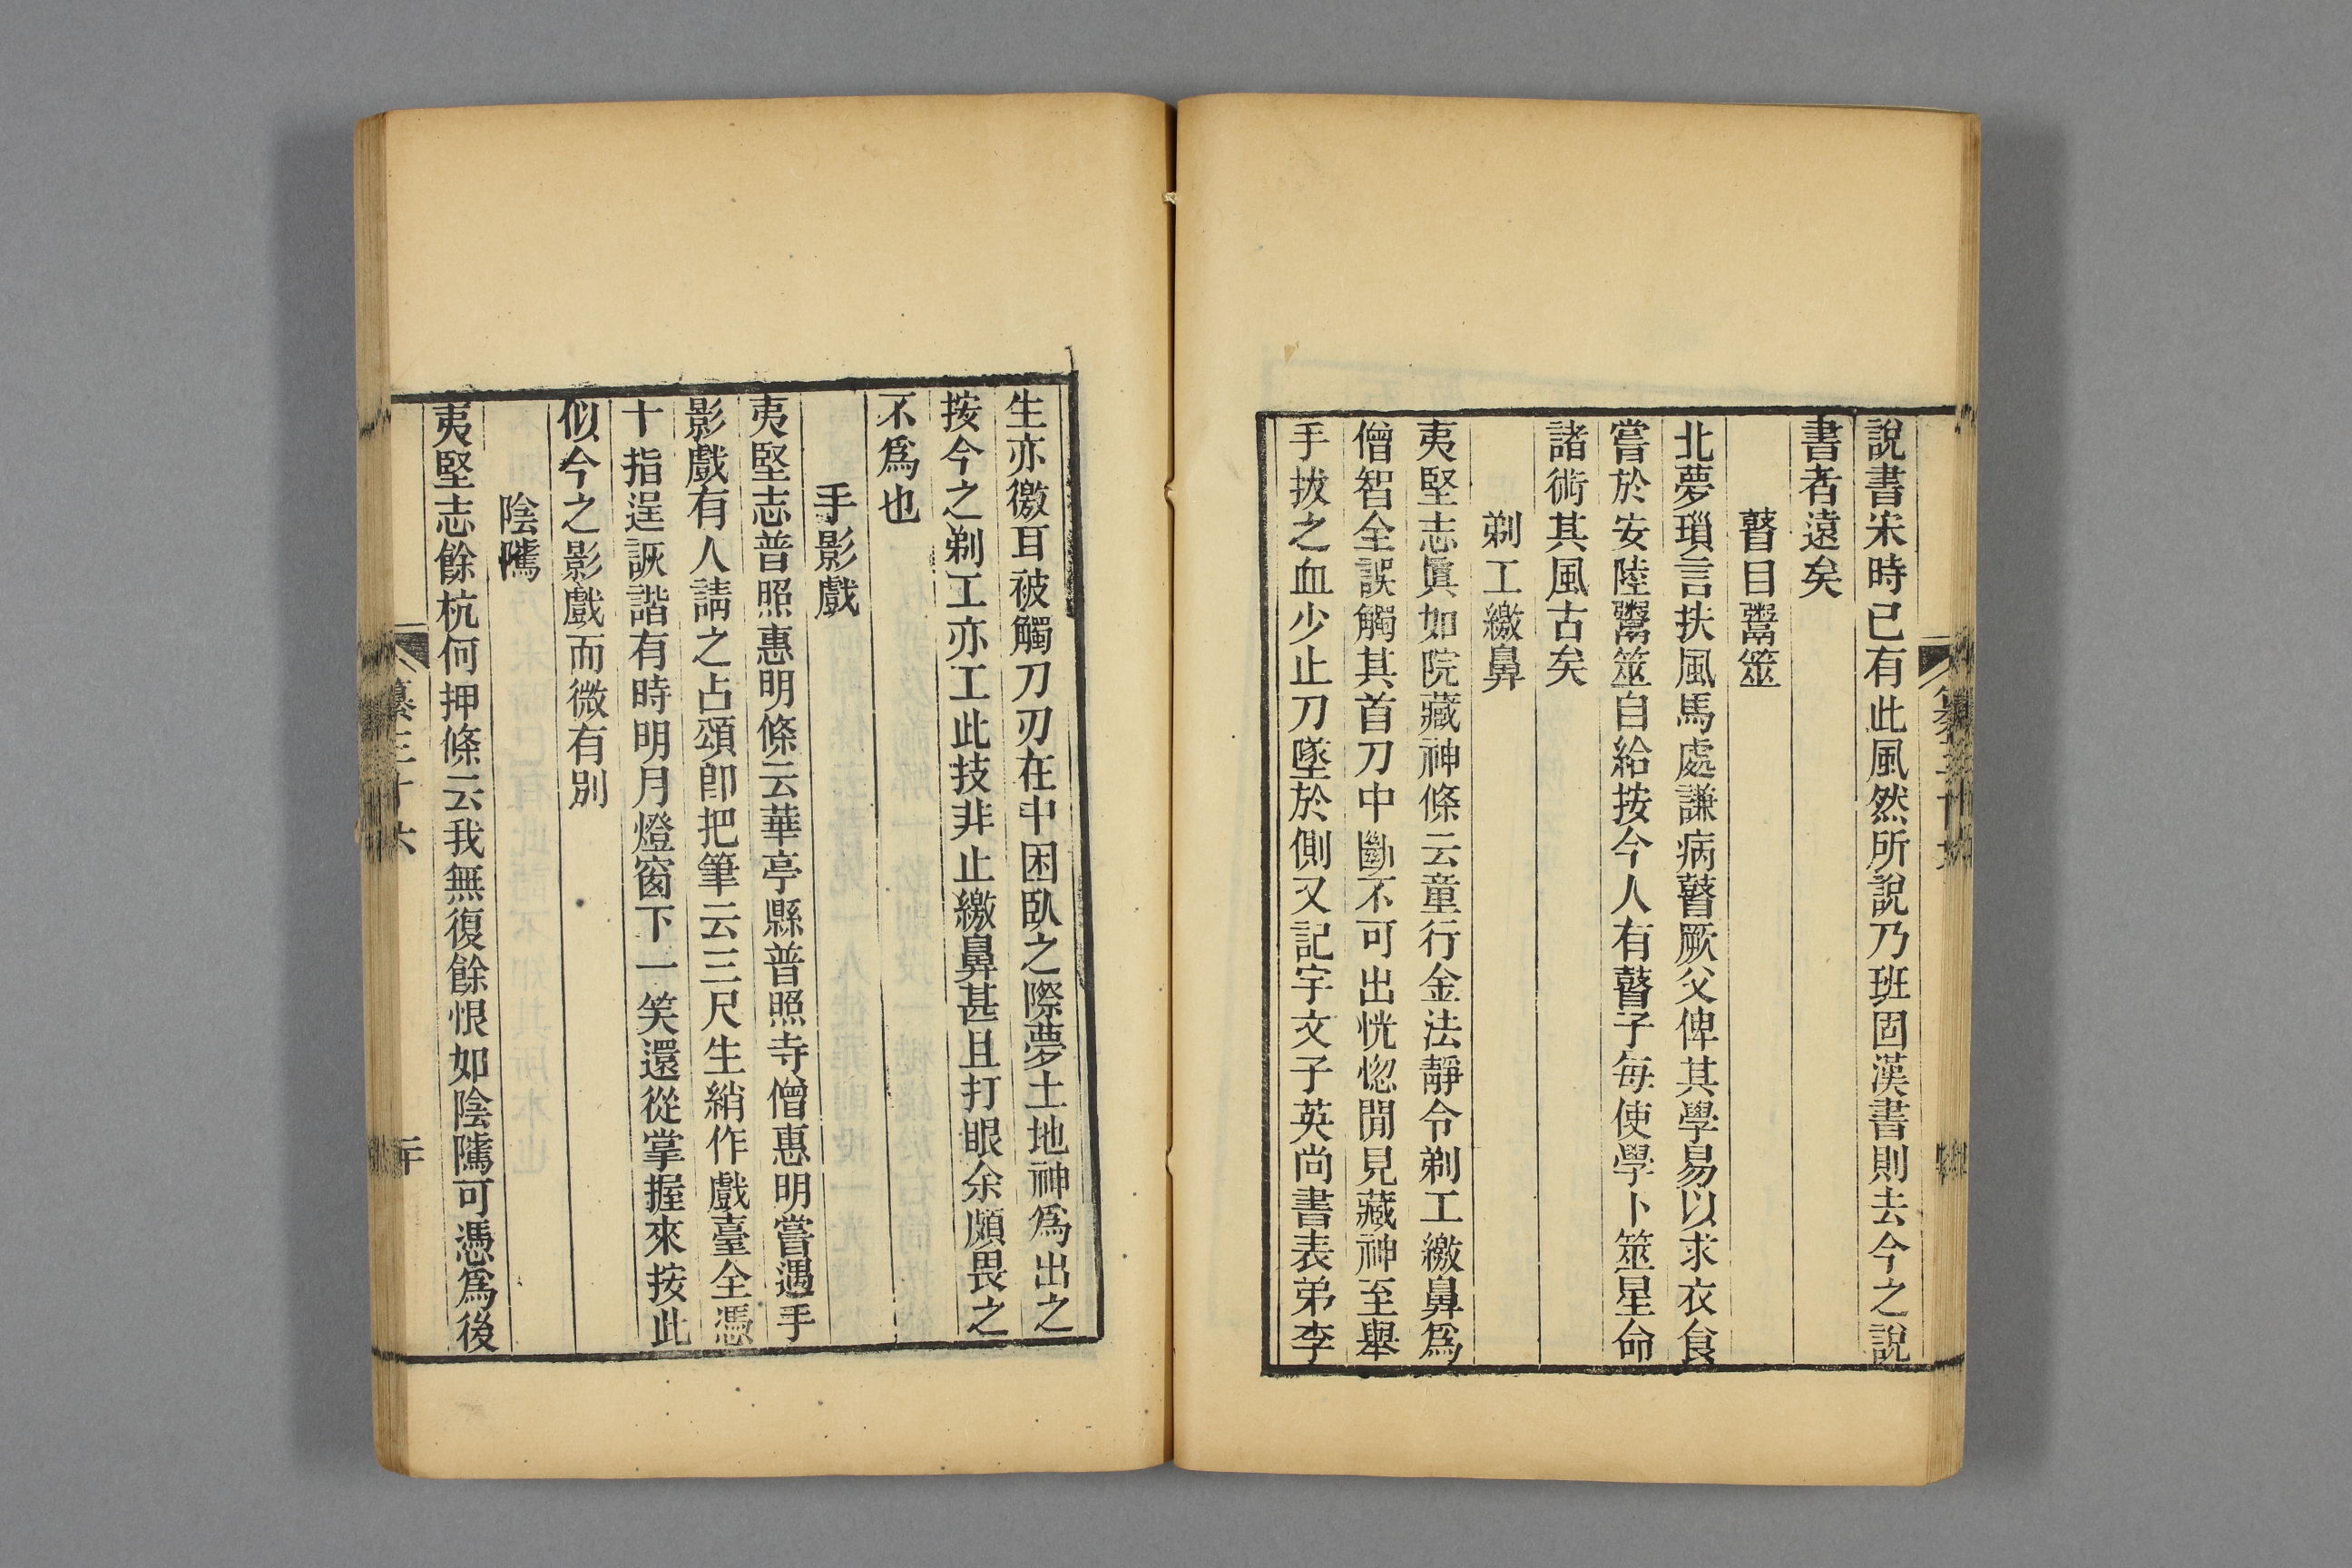 說書宋時已有此風然所說乃班固漢書則去今之說
書者遠矣
瞽目鬻筮
北夢瑣言扶風馬處謙病瞽厥父俾其學易以求衣食
嘗於安陸鬻筮自給按今人有瞽子每使學卜筮星命
諸術其風古矣
剃工繳鼻
夷堅志眞如院藏神條云童行金法靜令剃工繳鼻爲
僧智全誤觸其首刀中斷不可出恍惚閒見藏神至舉
手拔之血少止刀墜於側又記宇文子英尚書表弟李
生亦徼耳被觸刀刃在中困臥之際夢土地神爲出之
按今之剃工亦工此技非止繳鼻甚且打眼余頗畏之
不爲也
手影戲
夷堅志普照惠明條云華亭縣普照寺僧惠明嘗遇手
影戲有人請之占頌卽把筆云三尺生綃作戲臺全憑
十指逞詼諧有時明月燈窗下一笑還從掌握來按此
似今之影戲而微有別
陰隲
夷堅志餘杭何押條云我無復餘恨如陰隲可憑爲後
纂三十六